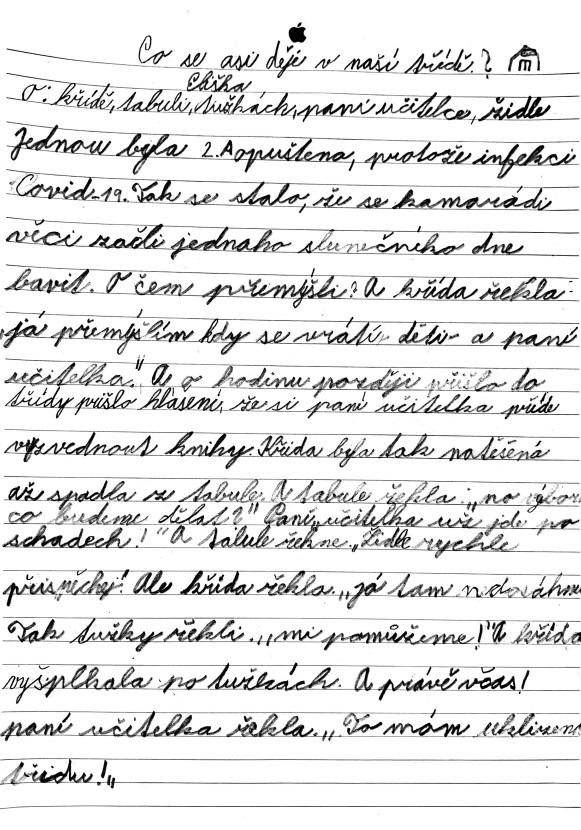 Co se asi děje v naší třídě?
Eliška
O: křídě, tabuli, tužkách, paní učitelce, židle
Jednou byla 2.A opuštena, protože infekci
Covid-19. Tak se stalo, že se kamarádi
věci začli jednoho slunečního dne
bavit. O čem přemýšli? A křída řekla
„já přemýšlím kdy se vrátí děti a paní
učitelka." A o hodinu později přišlo do
třídy přišlo hlášení, že si paní učitelka přide
vyzvednout knihy. Křída byla tak natěšená
až spadla z tabule. A tabule řekla: „no výbor
co budeme dělat?" Paní „učitelka už jde po
schadech!" A tabule řekne „Židle rychle
přispěchej! Ale křída řekla „já tam nedosáhnu
Tak tužky řekli „mi pomůžeme!" A křída
vyšplhala po tužkách. A právě včas!
paní učitelka řekla „To mám uklizeno
třídu!„